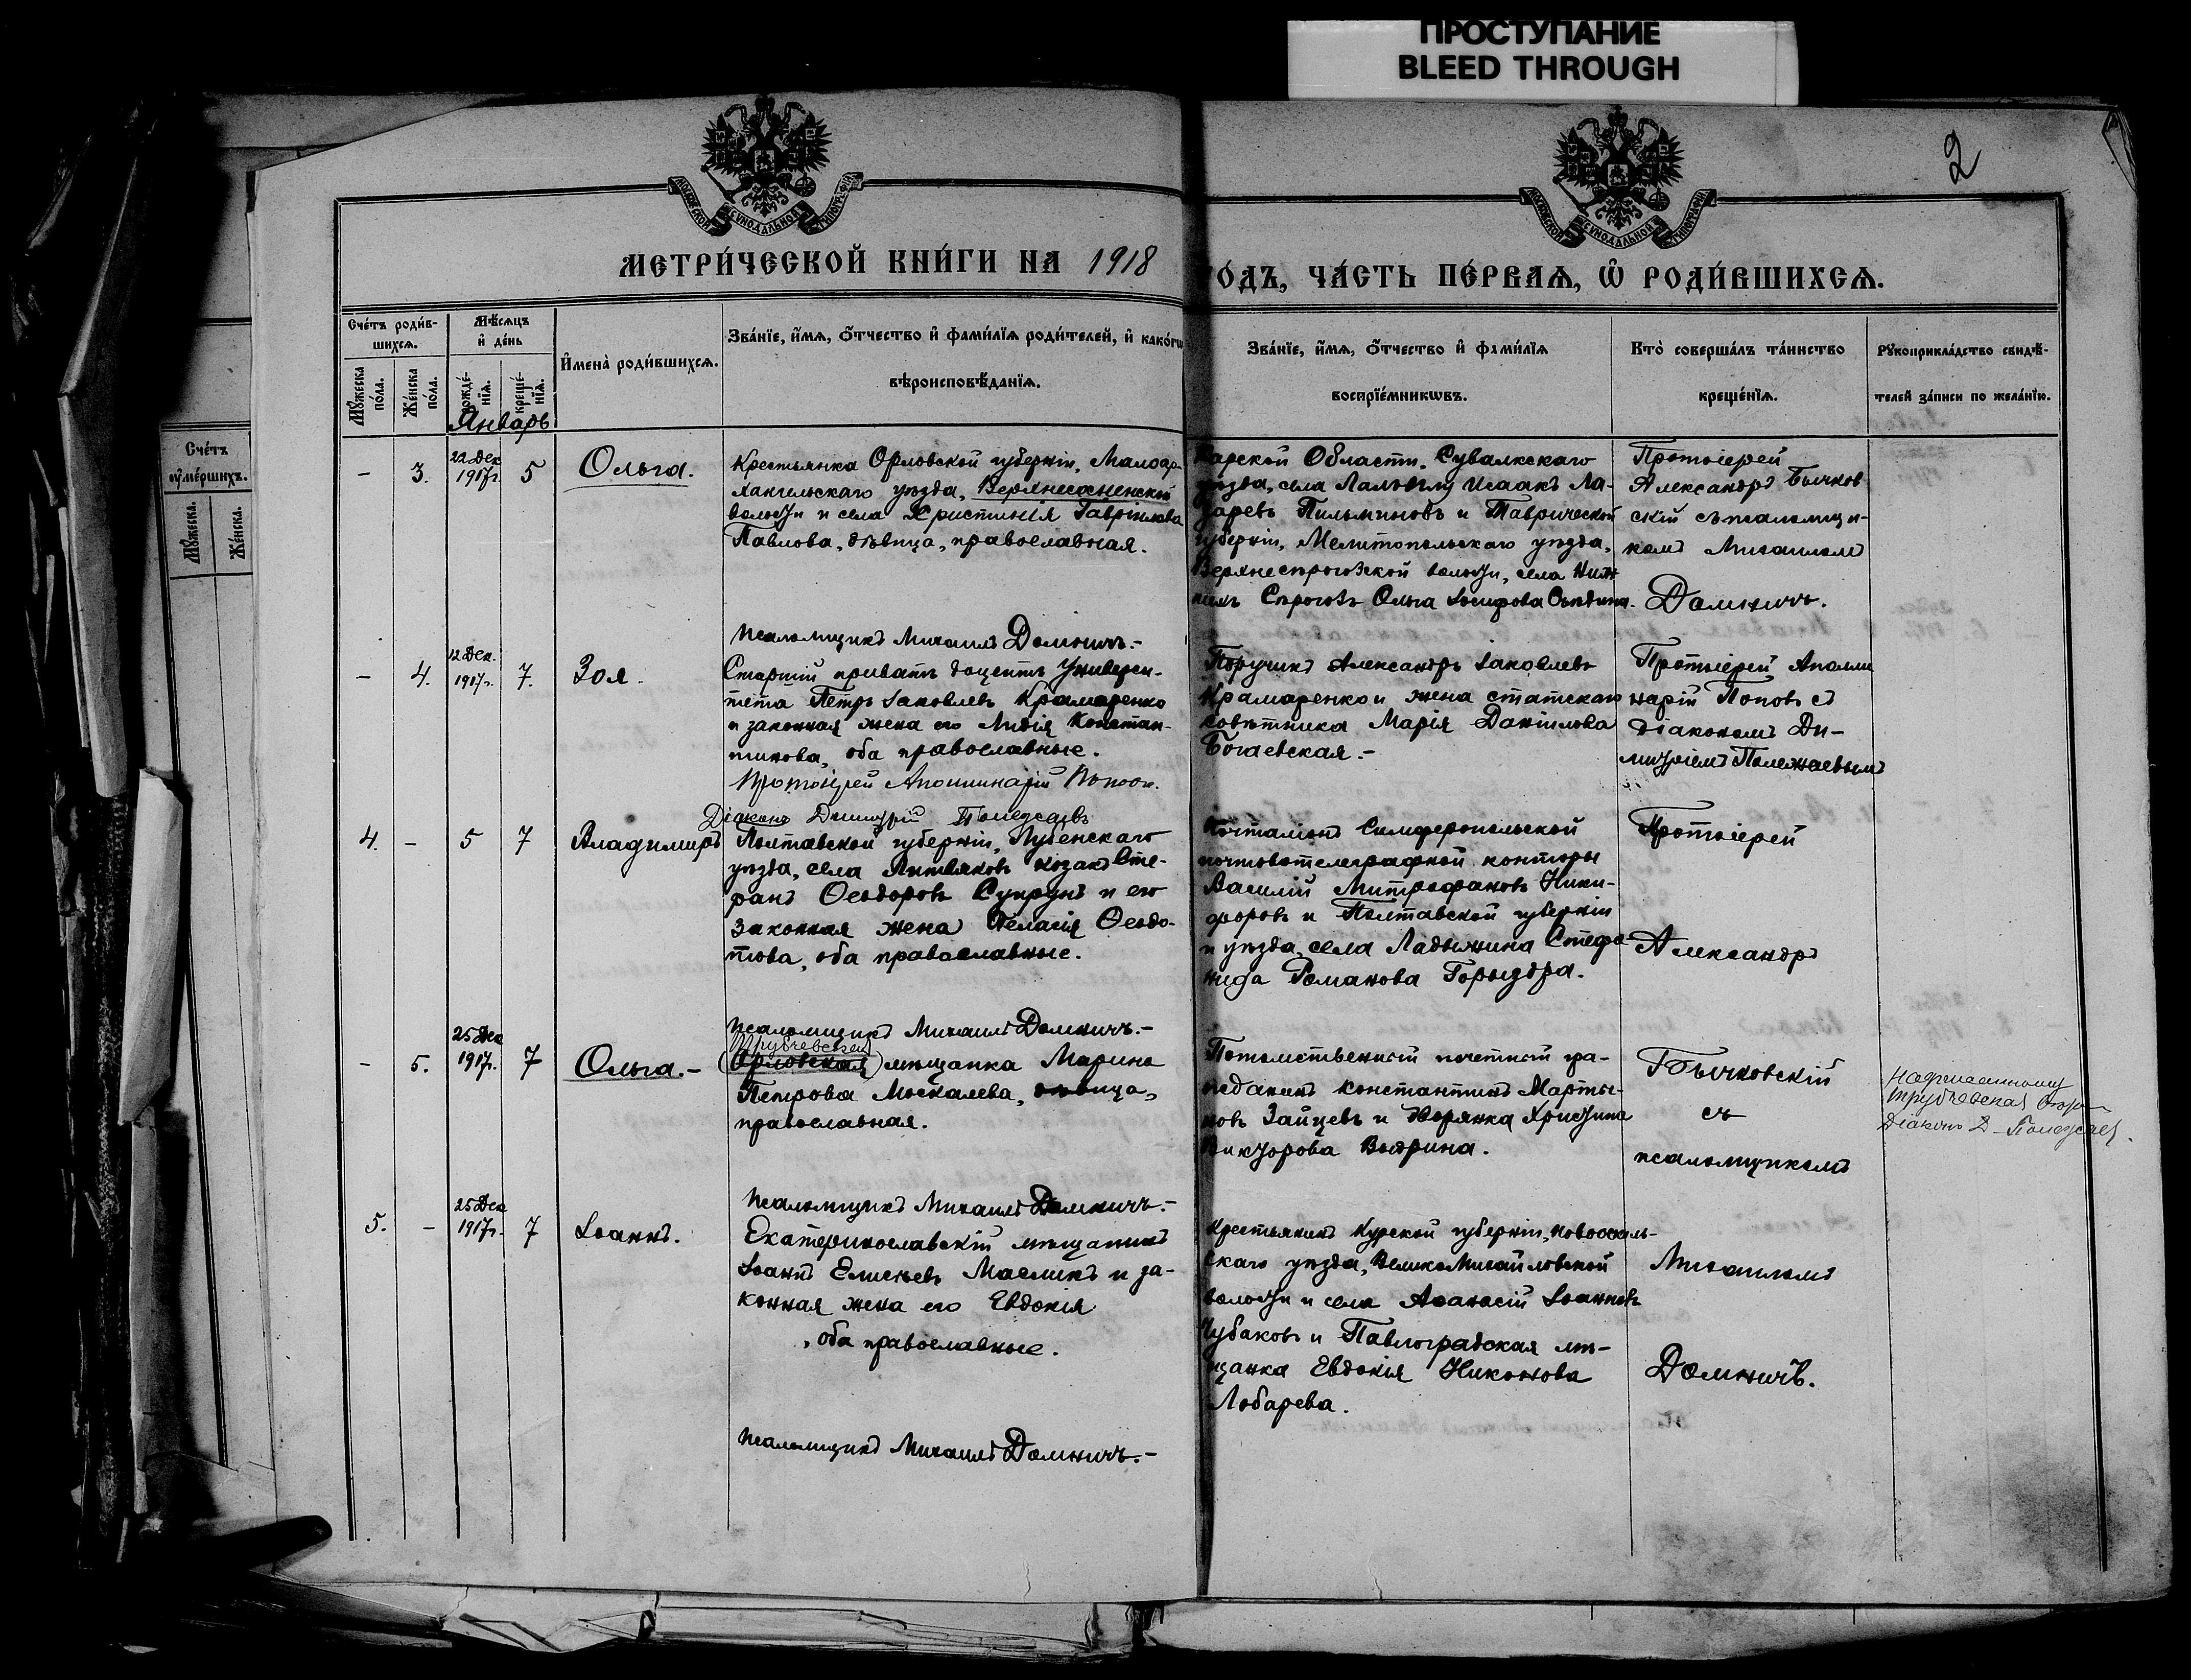 ПРОСТУПАНИЕ
BLEED THROUGH
2
МОСКОВСКОЙ СУНОДАЛЬНОЙ ТИПОГРАФІИ
МОСКОВСКОЙ СУНОДАЛЬНОЙ ТИПОГРАФІИ
МЕТРИ́ЧЕСКОЙ КНИ́ГИ НА 1918
О́ДЪ, ЧА́СТЬ ПЕ́РВАѦ, Ѡ҆ РОДИ́ВШИХСѦ.
Сче́тъ роди́в-
шихсѧ.
Мꙋ́жеска по́ла.
Же́нска по́ла.
Мѣ́сѧцъ
и҆ де́нь
рожде́-
нїѧ.
креще́-
нїѧ.
Январь
И҆мена̀ роди́вшихсѧ.
Зва́нїе, и҆́мѧ, ѻ҆́тчество и҆ фами́лїѧ роди́телей, и҆ како́гѡ
вѣроисповѣ́данїѧ.
Зва́нїе, и҆́мѧ, ѻ҆́тчество и҆ фами́лїѧ
воспрїе́мникѡвъ.
Кто̀ соверша́лъ та́инство
креще́нїѧ.
Рꙋкоприкла́дство свидѣ́-
телей за́писи по жела́нїю.
Сче́тъ
ᲂу҆ме́ршихъ.
Мꙋ́жеска.
Же́нска.
- 3. 22 Дек 1917г. 5 Ольга.
Крестьянка Орловской губерніи, Малоар-
хангельскаго уѣзда, Верхнесосненской
волости и села Христинія Гавріилова
Павлова, дѣвица, православная.
Псаломщикъ Михаилъ Домничъ.-
Карской Области, Сувалкскаго
уѣзда, села Исаакъ Ла-
заревъ Пильминовъ и Таврической
губерніи, Мелитопольскаго уѣзда,
Верхнесѣрогозской волости, села Ниж
нихъ Сѣрогозъ Ольга Іосифова
Протоіерей
Александръ Бычков
скій съ псаломщи-
комъ Михаиломъ
Домничъ.
- 4. 12 Дек. 1917г. 7. Зоя.
Старшій приватъ доцентъ Универси-
тета Петръ Іаковлевъ Крамаренко
и законная жена его Лидія Констан-
тинова, оба православные.
Протоіерей Аполлинарій Поповъ.
Діаконъ Димитрій Полежаевъ
Поручикъ Александръ Іаковлевъ
Крамаренко и жена статскаго
совѣтника Марія Даніилова
Богаевская.-
Протоіерей Аполли
нарій Поповъ съ
діакономъ Ди-
митріемъ Полежаевымъ
4. - 5 7 Владимиръ
Полтавской губерніи, Лубенскаго
уѣзда, села Литвяковъ козакъ Сте-
фанъ Ѳеодоровъ Супрунъ и его
законная жена Пелагія Ѳеодо-
това, оба православные.
Псаломщикъ Михаилъ Домничъ.-
Почталіонъ Симферопольской
почтовотелеграфной конторы
Василій Митрофановъ Ники-
форовъ и Полтавской губерніи
и уѣзда, села Ладыжина Стефа
нида Романова
Протоіерей
Александръ
- 5. 25 Дек 1917г. 7 Ольга.-
Трубчевская
(Орловская) мѣщанка Марина
Петрова Москалева, дѣвица,
православная.
Псаломщикъ Михаилъ Домничъ.-
Потомственный почетный гра-
жданинъ Константинъ Марты-
новъ Зайцевъ и дворянка Христина
Викторова
Бычковскій
съ
псаломщикомъ
надписанному
Трубчевская
Діаконъ Д. Полежаевъ.
5. - 25 Дек 1917г. 7 Іоаннъ.
Екатеринославскій мѣщанинъ
Іоаннъ Елисѣевъ Масликъ и за-
конная жена его Евдокія
, оба православные.
Псаломщикъ Михаилъ Домничъ.-
Крестьянинъ Курской губерніи, Новооскль-
скаго уѣзда, ВеликоМихайловской
волости и села Аѳанасій Іоанновъ
Чубаковъ и Павлоградская мѣ-
щанка Евдокія Никонова
Лобарева.
Михаиломъ
Домничъ.